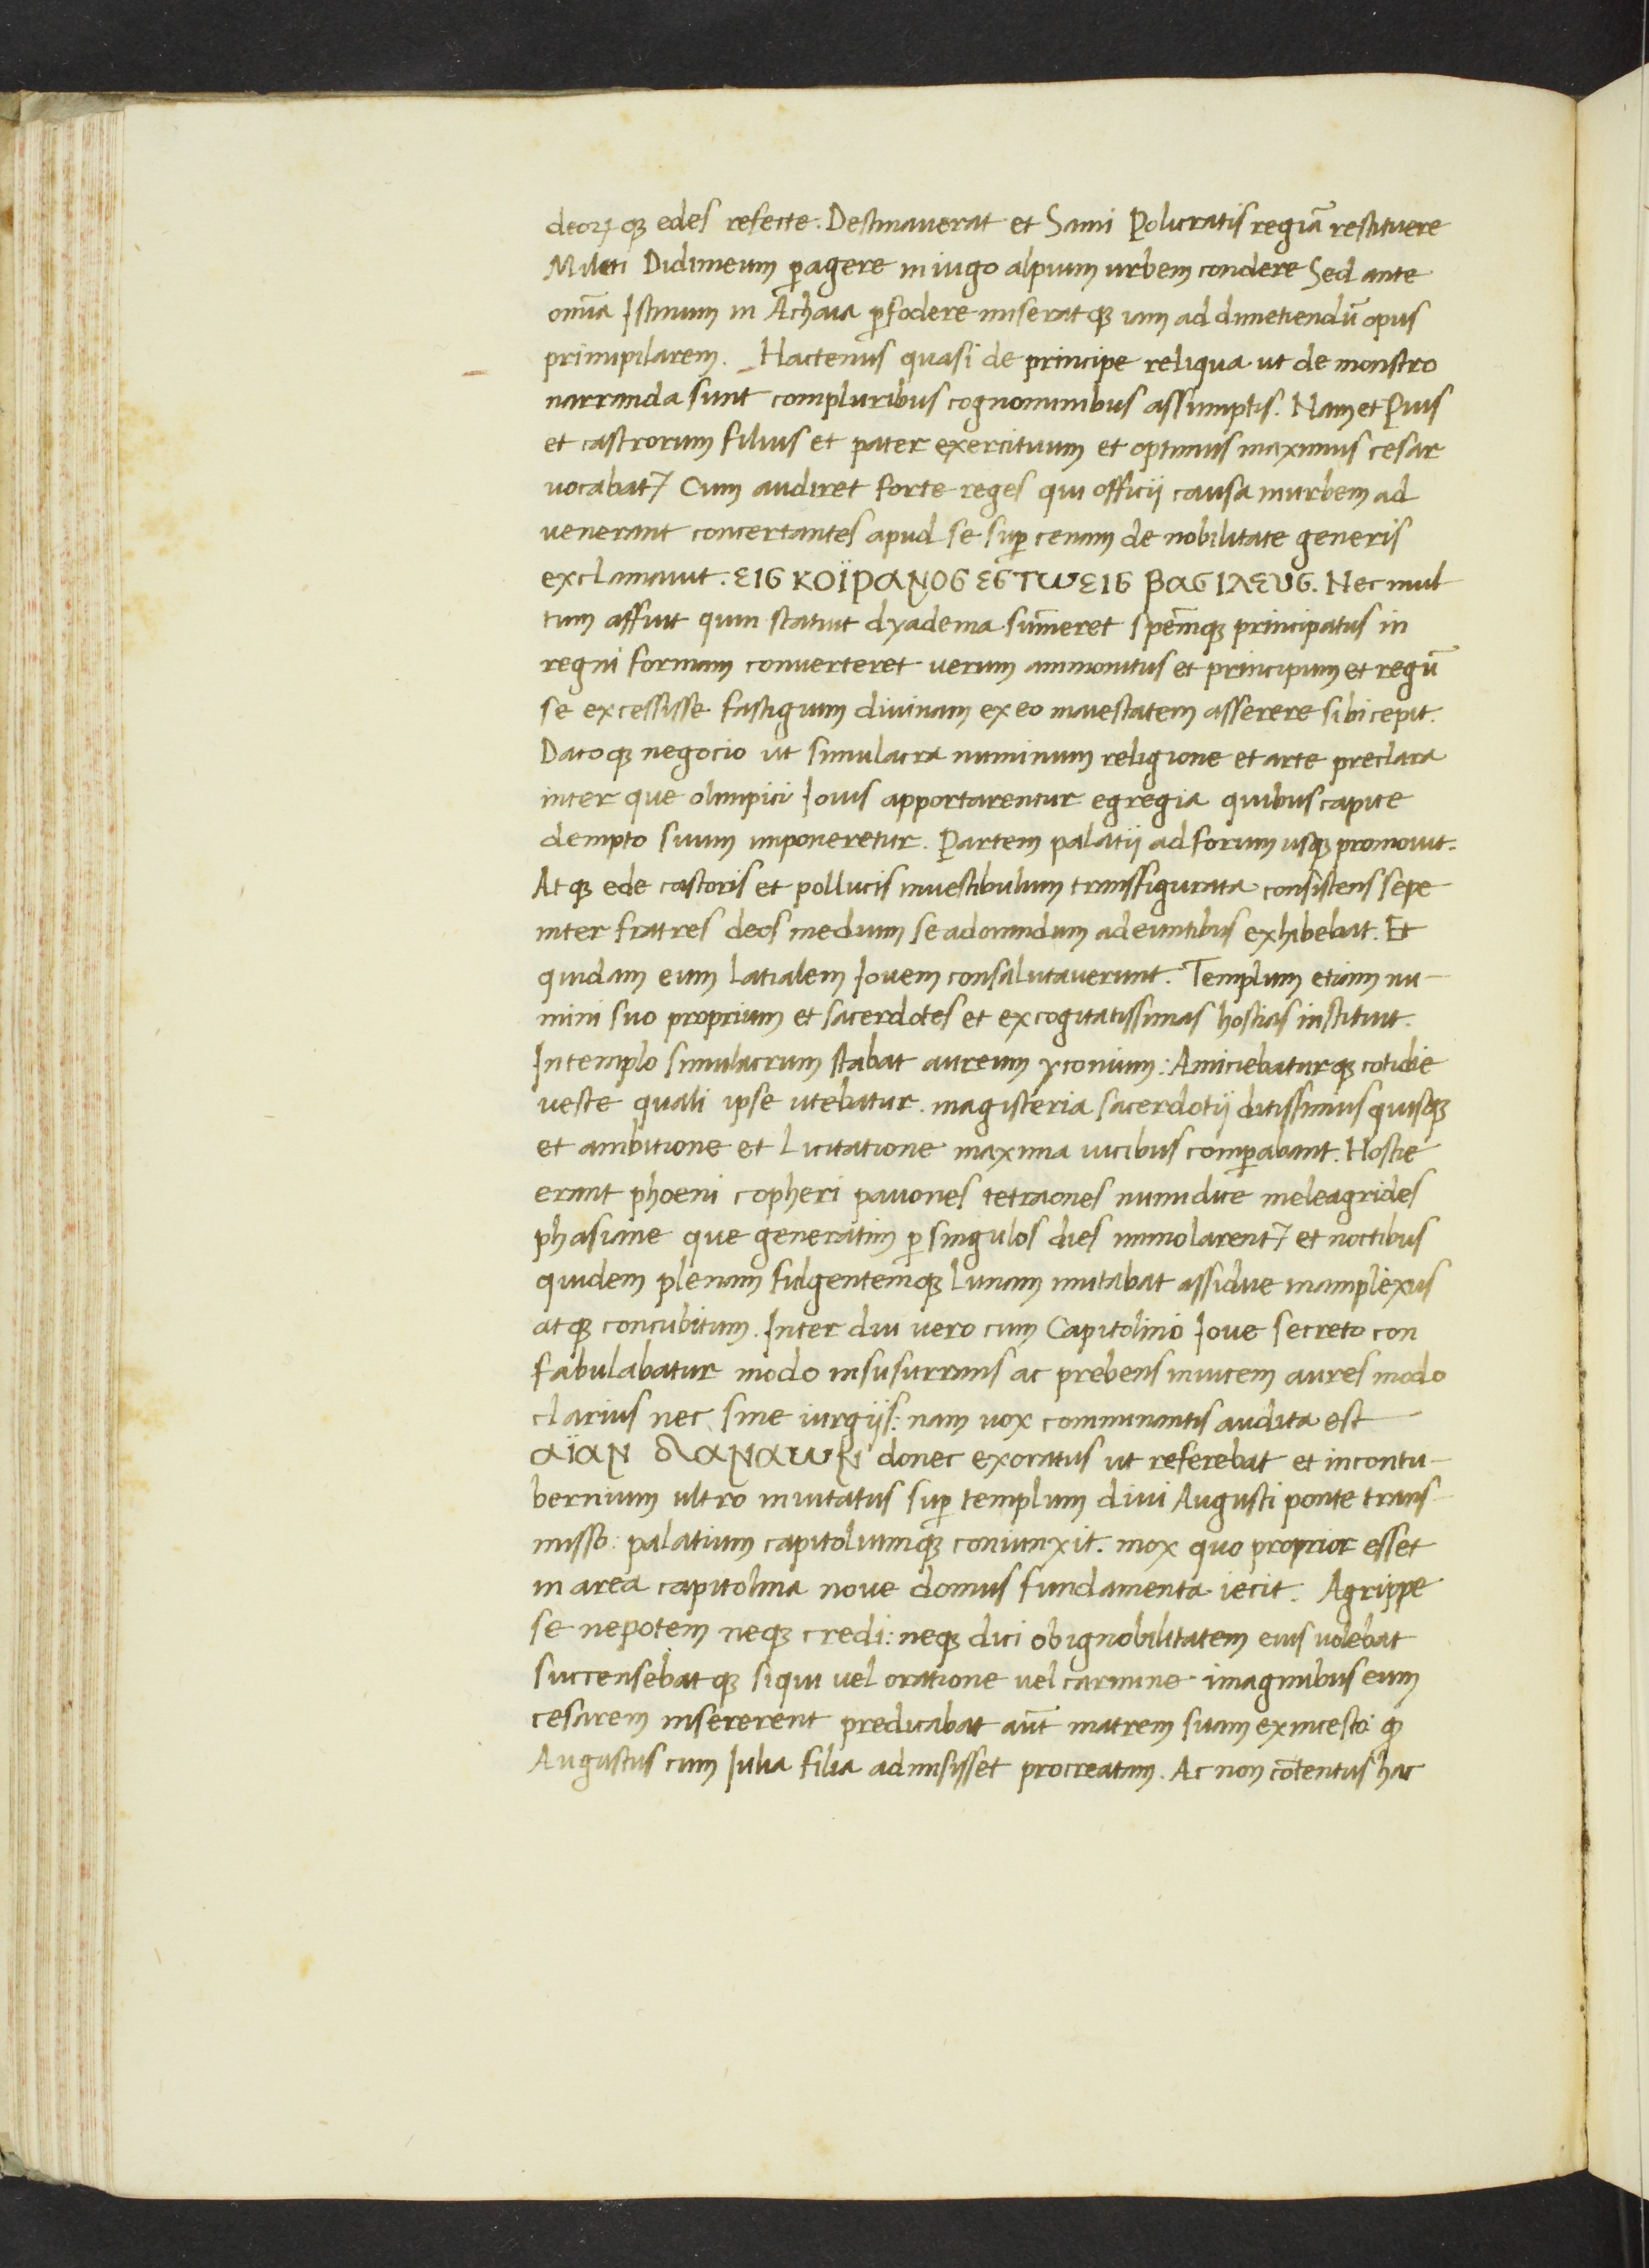 deoꝝ qꝫ edes refecte. Destinauerat et Sami Policratis regiā restituere
Mileti Didimeum ꝑagere in iugo alpium urbem condere Sed ante
omīa Istmum in Achaia ꝑfodere miserat qꝫ iam ad dimetiendū opus
primipilarem. Hactenus quasi de principe reliqua ut de monstro
narranda sunt compluribus cognominibus assumptis. Nam et Pius
et castrorum filius et pater exercituum et optimus maximus cesar
uocabat᷑ Cum audiret forte reges qui officij causa in urbem ad
uenerant concertantes apud se suꝑ cenam de nobilitate generis
exclamauit. ΕΙϹ ΚΟΪΡΑΝΟϹ ΕϹΤΩ ΕΙϹ ΒΑϹΙΛΕΥϹ. Nec mul
tum affuit quin statiut dyadema sum̄eret spem̄qꝫ principatus in
regni formam conuerteret uerum ammonitus et principum et regū
se excessisse fastigium diuinam ex eo maiestatem asserere sibi cepit.
Dato qꝫ negocio ut simulacra numinum religione et arte preclara
inter que olimpici Iouis apportarentur egregia quibus capite
dempto suum imponeretur. Partem palatij ad forum usqꝫ promouit.
At qꝫ ede castoris et pollucis in uestibulum transfigurata consistens sepe
inter fratres deos medium se adorandum adeuntibus exhibebat. Et
quidam eum latialem Iouem consalutauerunt. Templum etiam nu-
mini suo proprium et sacerdotes et excogitatissimas hostias instituit.
In templo simulacrum stabat aureum yconium: Amiciebatur qꝫ cotidie
ueste quali ipse utebatur. magisteria sacerdotij ditissimus quisqꝫ
et ambitione et licitatione maxima uicibus comꝑabant. Hostie
erant phoeni copheri pauones tetraones numidice meleagrides
phasiane que generatim ꝑ singulos dies immolarent᷑ et noctibus
quidem plenam fulgentem̄qꝫ lunam inuitabat assidue in amplexus
at qꝫ concubitum. Inter diu uero cum Capitolino Ioue secreto con
fabulabatur modo insusurrans ac prebens inuicem aures modo
clarius nec sine iurgijs: nam uox comminantis audita est
ΑΪΑΝ ΔΑΝΑΩΝ donec exoratus ut referebat et in contu-
bernium ultro inuitatus suꝑ templum diui Augusti ponte trans-
misso: palatium capitolium̄qꝫ coniunxit. mox quo proprior esset
in area capitolina noue domus fundamenta iecit. Agrippe
se nepotem neqꝫ credi: neqꝫ dici ob ignobilitatem eius uolebat
succensebat qꝫ si qui uel oratione uel carmine imaginibus eum
cesarem insererent predicabat aūt matrem suam ex incesto: qd̄
Augustus cum Iulia filia admisisset procreatam. Ac non cōtentus hac